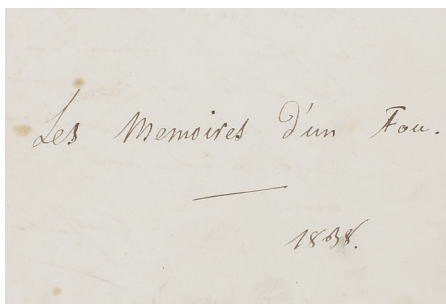 Les Memoires d'un Fou.
1838.